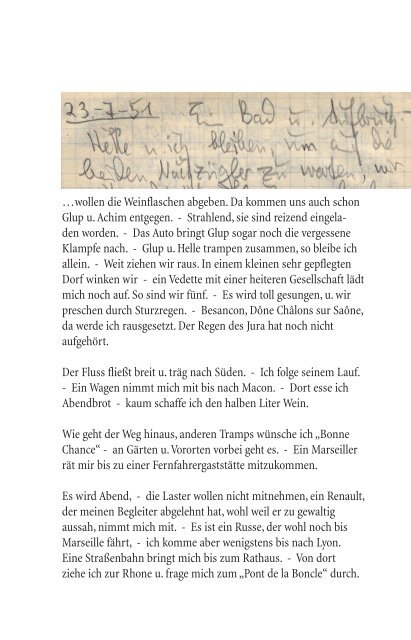 23.-7-51 Ein Bad u. Aufbruch. -
Helle u. ich bleiben, um auf die
beiden Nachzügler zu warten, wir
…wollen die Weinflaschen abgeben. Da kommen uns auch schon
Glup u. Achim entgegen. - Strahlend, sie sind reizend eingela-
den worden. - Das Auto bringt Glup sogar noch die vergessene
Klampfe nach. - Glup u. Helle trampen zusammen, so bleibe ich
allein. - Weit ziehen wir raus. In einem kleinen sehr gepflegten
Dorf winken wir - ein Vedette mit einer heiteren Gesellschaft lädt
mich noch auf. So sind wir fünf. - Es wird toll gesungen, u. wir
preschen durch Sturzregen. - Besancon, Dône Châlons sur Saône,
da werde ich rausgesetzt. Der Regen des Jura hat noch nicht
aufgehört.
Der Fluss fließt breit u. träg nach Süden. - Ich folge seinem Lauf.
- Ein Wagen nimmt mich mit bis nach Macon. - Dort esse ich
Abendbrot - kaum schaffe ich den halben Liter Wein.
Wie geht der Weg hinaus, anderen Tramps wünsche ich „Bonne
Chance“ - an Gärten u. Vororten vorbei geht es. - Ein Marseiller
rät mir bis zu einer Fernfahrergaststätte mitzukommen.
Es wird Abend, - die Laster wollen nicht mitnehmen, ein Renault,
der meinen Begleiter abgelehnt hat, wohl weil er zu gewaltig
aussah, nimmt mich mit. - Es ist ein Russe, der wohl noch bis
Marseille fährt, - ich komme aber wenigstens bis nach Lyon.
Eine Straßenbahn bringt mich bis zum Rathaus. - Von dort
ziehe ich zur Rhone u. frage mich zum „Pont de la Boncle“ durch.